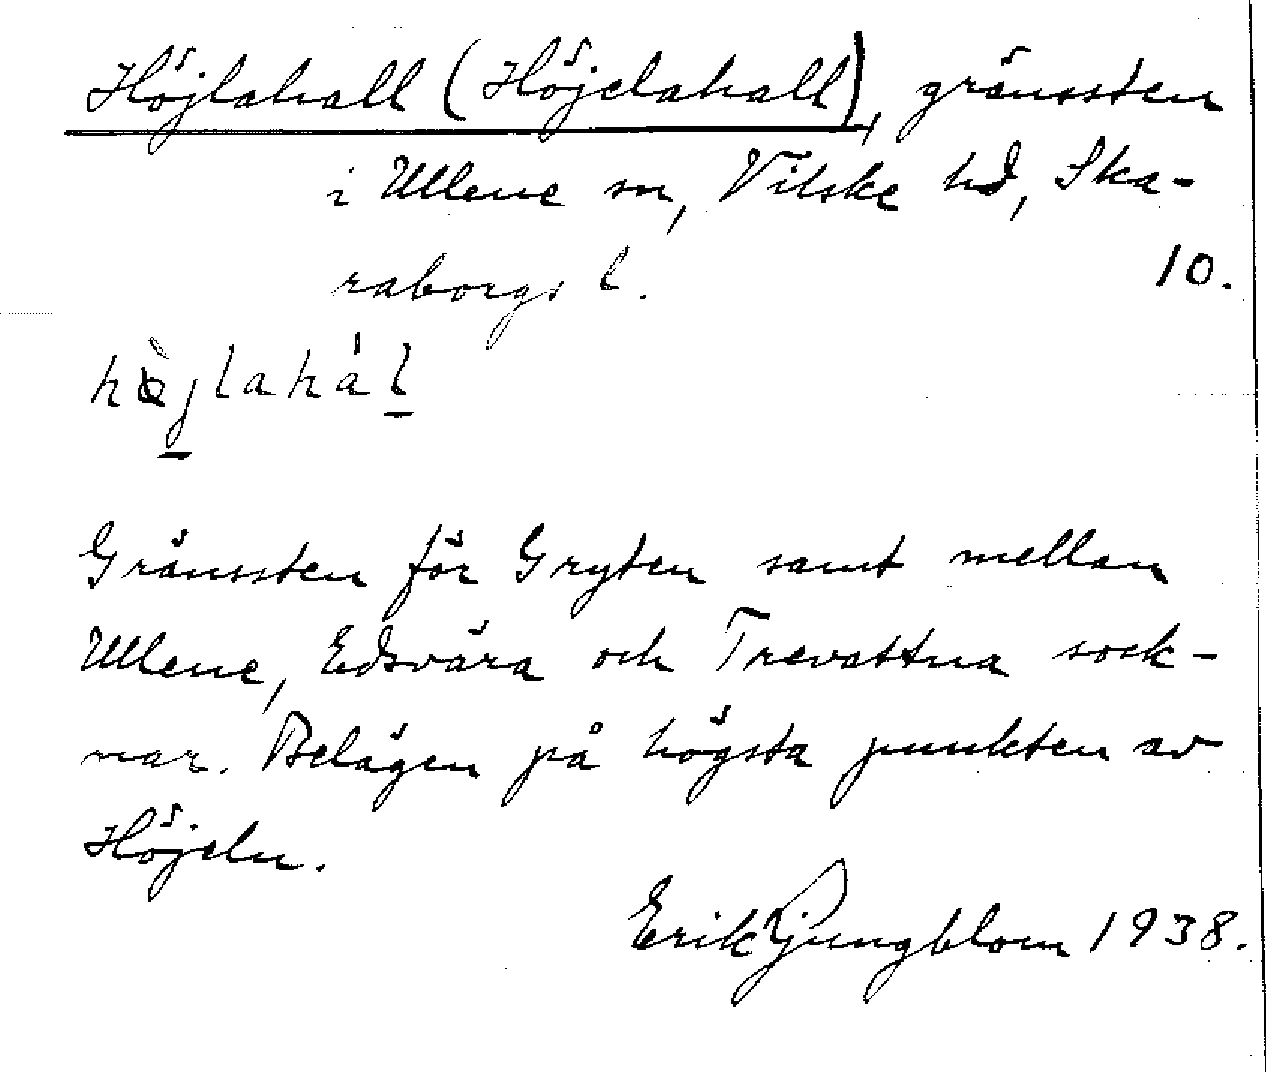 Höjlahall (Höjelahall), gränssten
i Ullene sn, Vilske hd, Ska-
raborgs l.
10.
Gränssten för Gryten samt mellan
Ullene, Edsvära och Trevattna sock-
nar. Belägen på högsta punkten av
Höjeln.
Erik Ljungblom 1938.